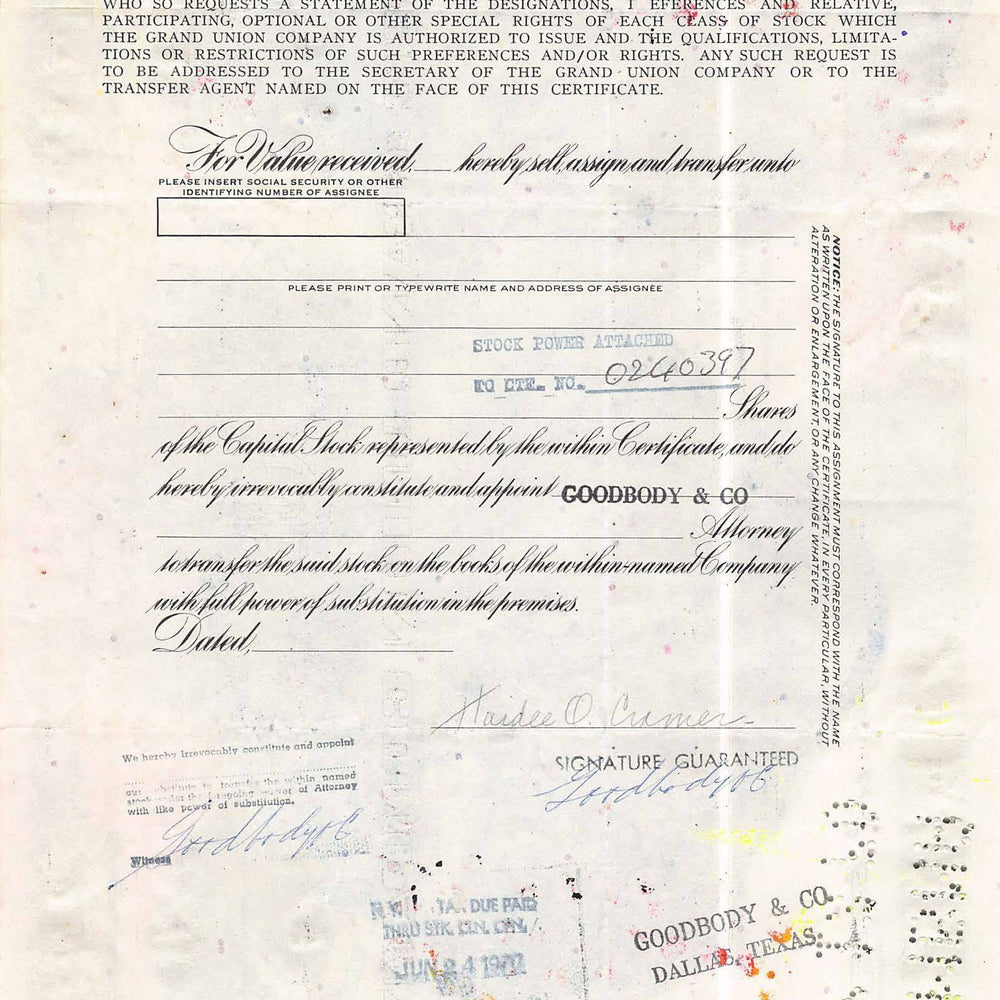 WHO SO REQUESTS A STATEMENT OF THE DESIGNATIONS, EFERENCES AND RELATIVE,
PARTICIPATING, OPTIONAL OR OTHER SPECIAL RIGHTS OF EACH CLASS OF STOCK WHICH
THE GRAND UNION COMPANY IS AUTHORIZED TO ISSUE AND THE QUALIFICATIONS, LIMITA-
TIONS OR RESTRICTIONS OF SUCH PREFERENCES AND/OR RIGHTS. ANY SUCH REQUEST IS
TO BE ADDRESSED TO THE SECRETARY OF THE GRAND UNION COMPANY OR TO THE
TRANSFER AGENT NAMED ON THE FACE OF THIS CERTIFICATE.
For Value received, ___ hereby sell, assign and transfer unto
PLEASE INSERT SOCIAL SECURITY OR OTHER
IDENTIFYING NUMBER OF ASSIGNEE
PLEASE PRINT OR TYPEWRITE NAME AND ADDRESS OF ASSIGNEE
STOCK POWER ATTACHED
TO CTF. NO. 0240397
Shares
of the Capital Stock represented by the within Certificate, and do
hereby irrevocably constitute and appoint GOODBODY & CO
Attorney
to transfer the said stock on the books of the within-named Company
with full power of substitution in the premises.
Dated,
NOTICE: THE SIGNATURE TO THIS ASSIGNMENT MUST CORRESPOND WITH THE NAME
AS WRITTEN UPON THE FACE OF THE CERTIFICATE, IN EVERY PARTICULAR, WITHOUT
ALTERATION OR ENLARGEMENT, OR ANY CHANGE WHATEVER.
Haidee O. Cramer
SIGNATURE GUARANTEED
Goodbody & C
We hereby irrevocably constitute and appoint
our substitute to transfer the within named
stock under the foregoing power of Attorney
with like power of substitution.
Goodbody & C
Witness
TAX DUE PAID
THRU STK. CLN. CPN.
JUN 24 1970
GOODBODY & CO.
DALLAS, TEXAS